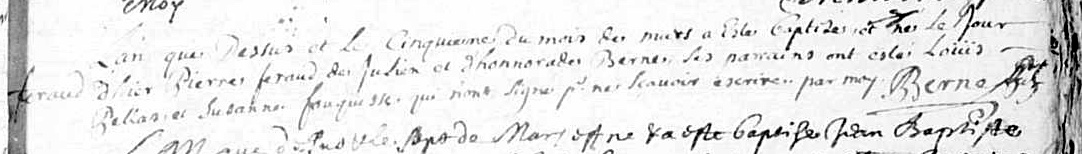 moy
L'an que dessus et le cinquieme du mois de mars a esté baptizé et né le jour
feraud d'hier Pierre feraud de Julien et d'honnorade Berne, les parrains ont estés Loüis
Pellas et Susanne fouquesse qui n'ont signé pr ne sçavoir escrire par moy Berne
L'an que dessus et le sept de Mars est né & a esté baptisé Jean Baptiste